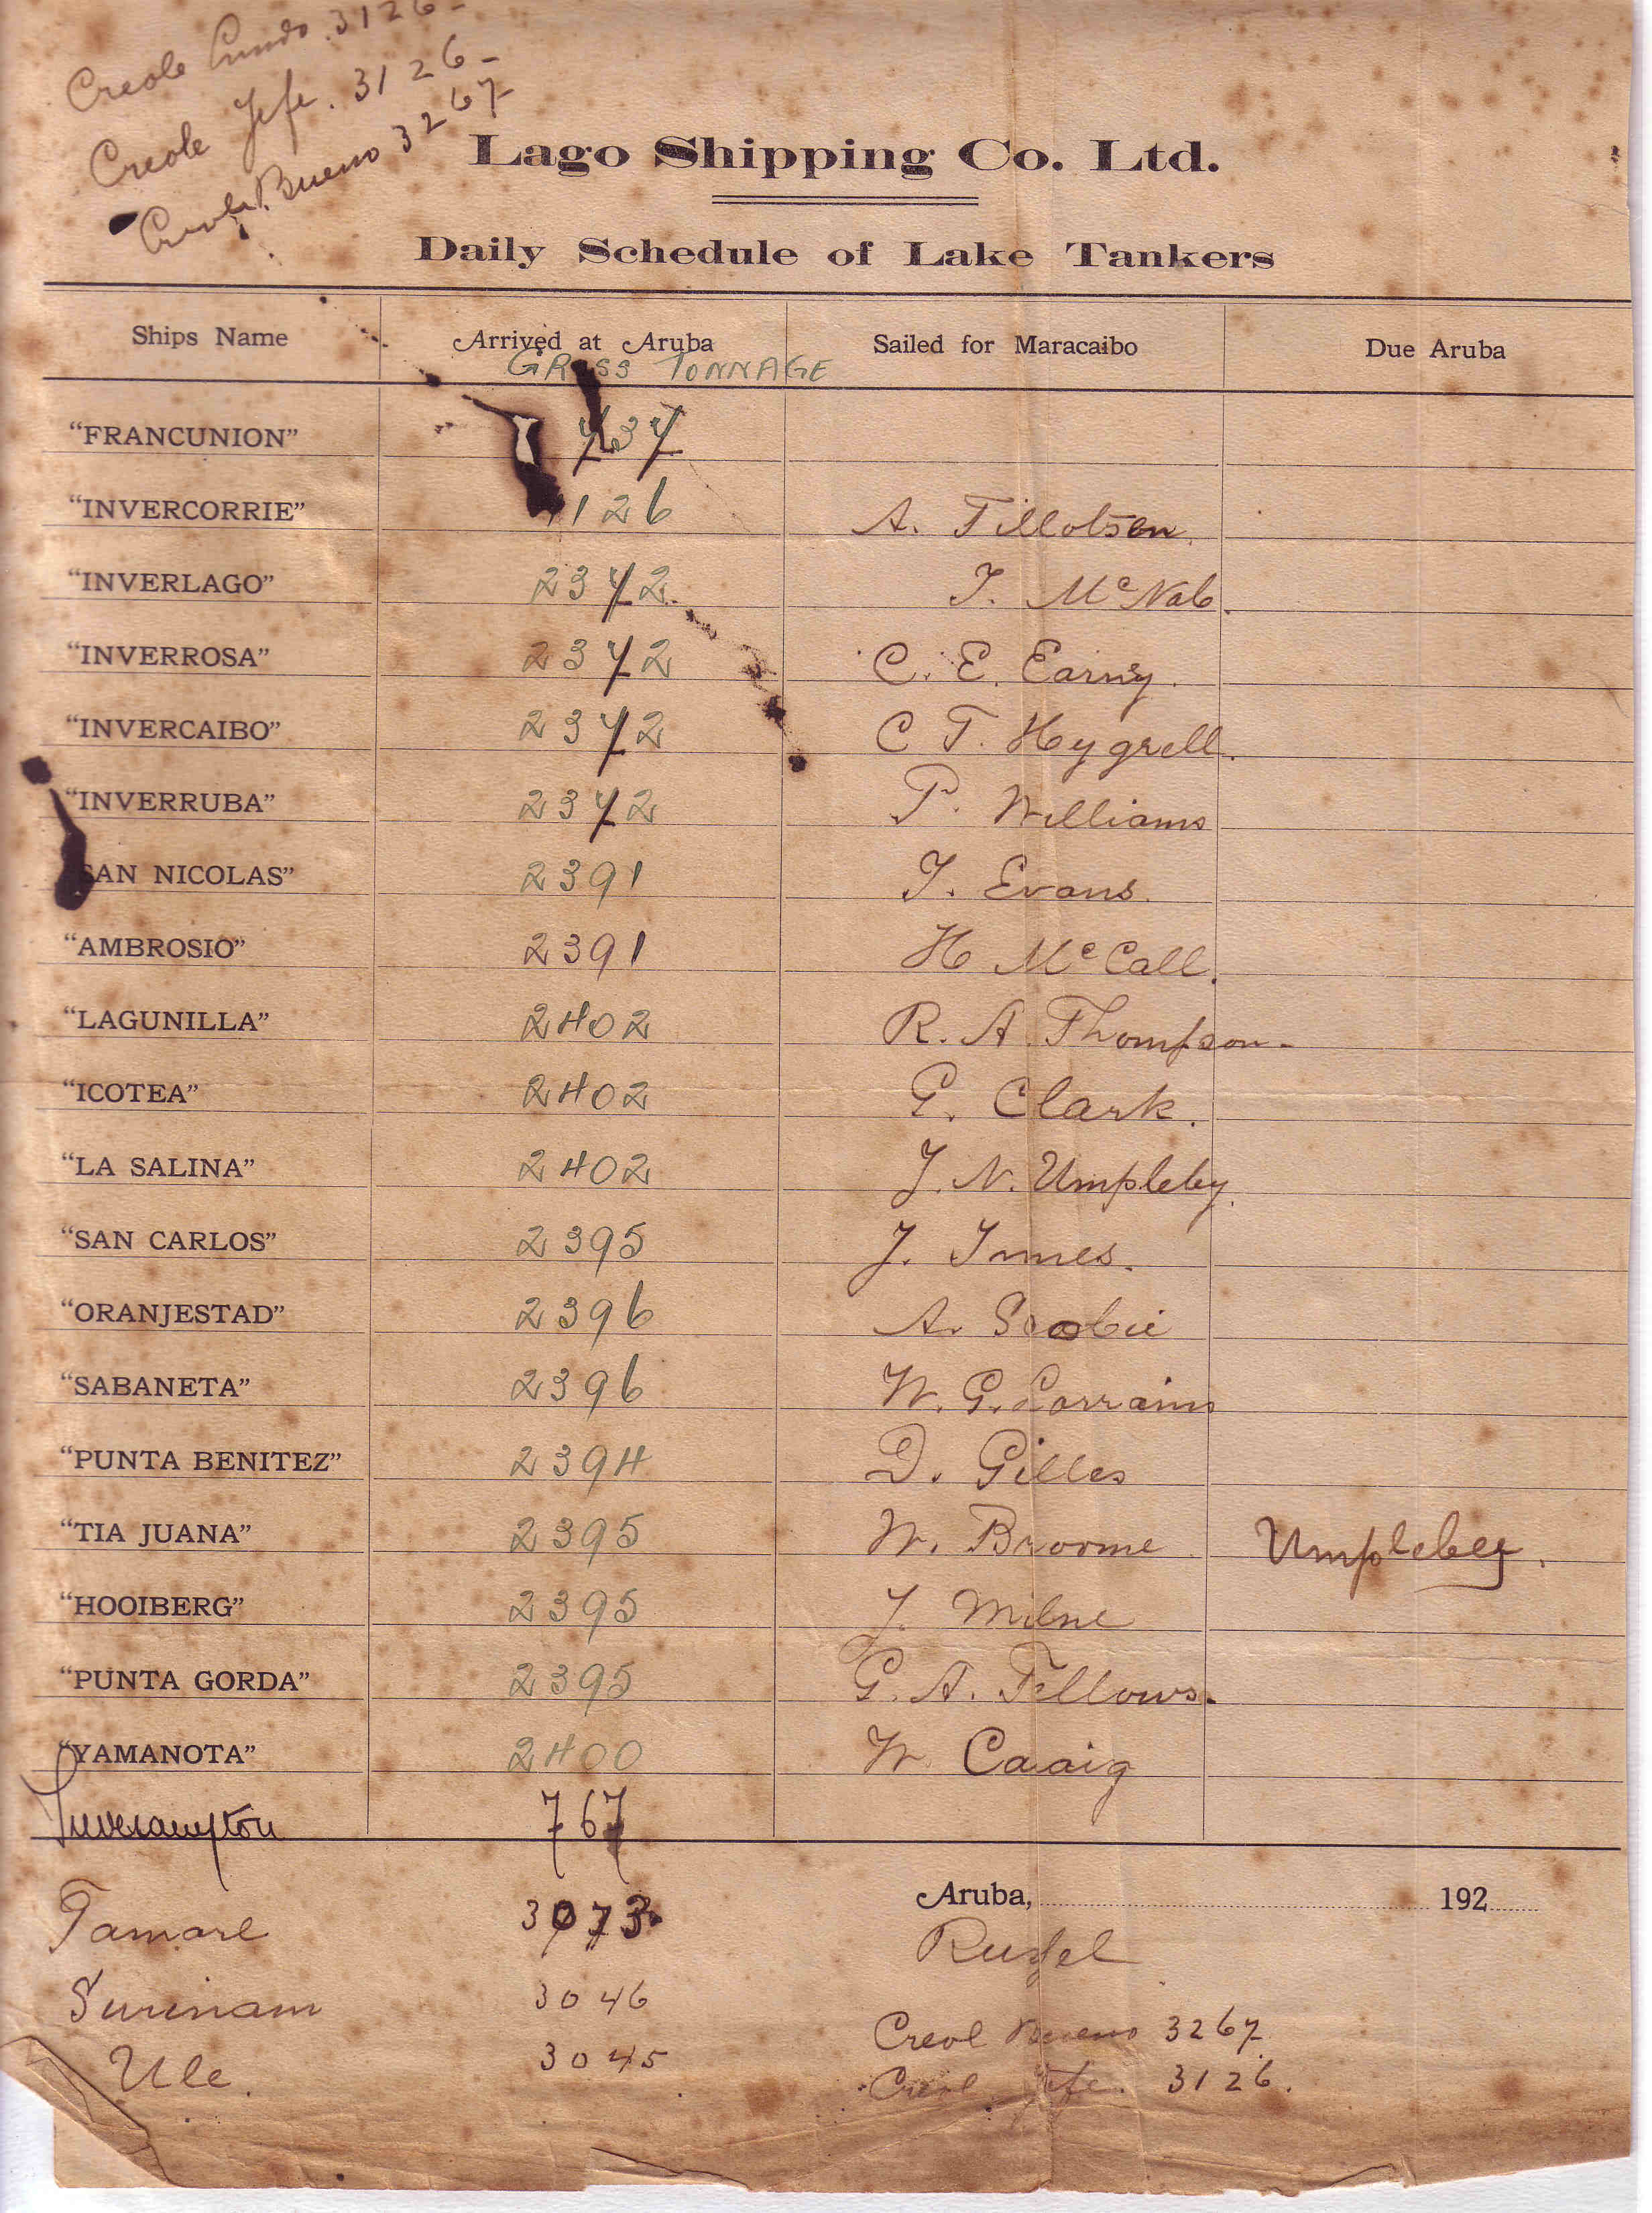 Creole Cundo. 3126-
Creole Jefe. 3126-
Creole Bueno 3267-
Lago Shipping Co. Ltd.
Daily Schedule of Lake Tankers
Ships Name Arrived at Aruba Sailed for Maracaibo Due Aruba
GROSS TONNAGE
"FRANCUNION"
"INVERCORRIE" 1126 A. Tillotson.
"INVERLAGO" 2372 T. McNab.
"INVERROSA" 2372 C. E. Earny.
"INVERCAIBO" 2372 C T. Heygrell.
"INVERRUBA" 2372 P. Williams
"SAN NICOLAS" 2391 T. Evans.
"AMBROSIO" 2391 H McCall.
"LAGUNILLA" 2402 R. A. Thompson-
"ICOTEA" 2402 G. Clark.
"LA SALINA" 2402 J. N. Umpleby.
"SAN CARLOS" 2395 J. Innes.
"ORANJESTAD" 2396 A. Scobie
"SABANETA" 2396 W. G. Lorrains
"PUNTA BENITEZ" 2394 D. Gilles
"TIA JUANA" 2395 W. Broome Umplebey.
"HOOIBERG" 2395 J. Milne
"PUNTA GORDA" 2395 G. A. Fellows.
"YAMANOTA" 2400 W. Craig
Inverampton 767
Aruba, 192
Tamare 3073.
Surinam 3046
Creol Bueno 3267
Ule. 3045
Creol Jefe. 3126.